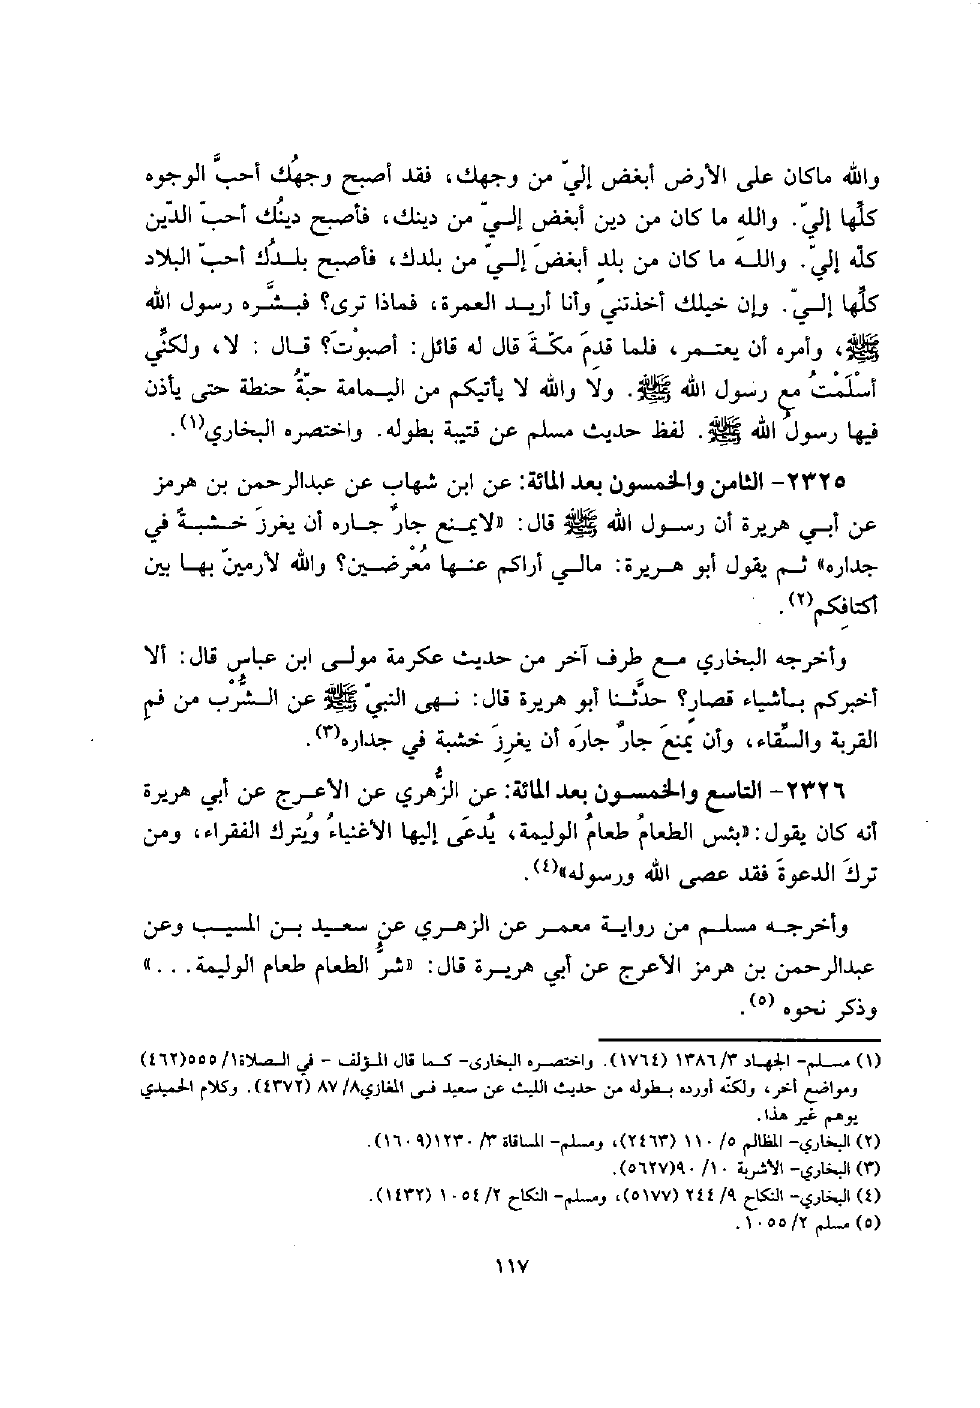 والله ماكان على الأرض أبغض إليّ من وجهك، فقد أصبح وجهُك أحبَّ الوجوه
كلِّها إليّ. واللهِ ما كان من دين أبغض إلـيّ من دينك، فأصبح دينُك أحبّ الدّين
كلّه إليّ. واللـه ما كان من بلدٍ أبغضَ إلـيّ من بلدك، فأصبح بلـدُك أحبّ البلاد
كلِّها إلـيّ. وإن خيلك أخذتني وأنا أريـد العمرة، فماذا ترى؟ فبشَّره رسول الله
ﷺ، وأمره أن يعتـمر، فلما قدِمَ مكّـةَ قال له قائل: أصبوْتَ؟ قـال : لا، ولكنّي
أسْلَمْتُ مع رسول الله ﷺ. ولا والله لا يأتيكم من اليـمامة حبّةُ حنطة حتى يأذن
فيها رسولُ الله ﷺ. لفظ حديث مسلم عن قتيبة بطوله. واختصره البخاري(١).
٢٣٢٥- الثامن والخمسون بعد المائة: عن ابن شهاب عن عبدالرحمن بن هرمز
عن أبـي هريرة أن رسـول الله ﷺ قال: «لايمـنع جارٌ جـاره أن يغرزَ خـشبـةً في
جداره» ثـم يقول أبو هـريرة: مالـي أراكم عنـها مُعْرضـين؟ والله لأرمينّ بهـا بين
أكتافِكم(٢).
وأخرجه البخاري مـع طرف آخر من حديث عكرمة مولـى ابن عباس قال: ألا
أخبركم بـأشياء قصارٍ؟ حدَّثنـا أبو هريرة قال: نـهى النبيّ ﷺ عن الشُّرْب من فمِ
القربة والسِّقاء، وأن يمنعَ جارٌ جارَه أن يغرِزَ خشبة في جداره(٣).
٢٣٢٦- التاسع والخمسـون بعد المائة: عن الزُّهْري عن الأعـرج عن أبي هريرة
أنه كان يقول: «بئس الطعامُ طعامُ الوليمة، يُدعَى إليها الأغنياءُ ويُترك الفقراء، ومن
تركَ الدعوةَ فقد عصى الله ورسوله»(٤).
وأخرجـه مسلـم من روايـة معمـر عن الزهـري عن سعيـد بـن المسيـب وعن
عبدالرحمن بن هرمز الأعرج عن أبي هريـرة قال: «شرُّ الطعام طعام الوليمة...»
وذكر نحوه (٥).
(١) مسـلم- الجهـاد ٣/ ١٣٨٦ (١٧٦٤). واختصـره البخارى- كـما قال المـؤلف - في الـصلاة١/ ٥٥٥(٤٦٢)
ومواضع أخر، ولكنّه أورده بـطوله من حديث الليث عن سعيد فـى المغازي٨/ ٨٧ (٤٣٧٢). وكلام الحميدي
يوهم غير هذا.
(٢) البخاري- المظالم ٥/ ١١٠ (٢٤٦٣)، ومسلم- المساقاة ٣/ ١٢٣٠(١٦٠٩).
(٣) البخاري- الأشربة ١٠/ ٩٠(٥٦٢٧).
(٤) البخاري- النكاح ٩/ ٢٤٤ (٥١٧٧)، ومسلم- النكاح ٢/ ١٠٥٤ (١٤٣٢).
(٥) مسلم ٢/ ١٠٥٥.
١١٧